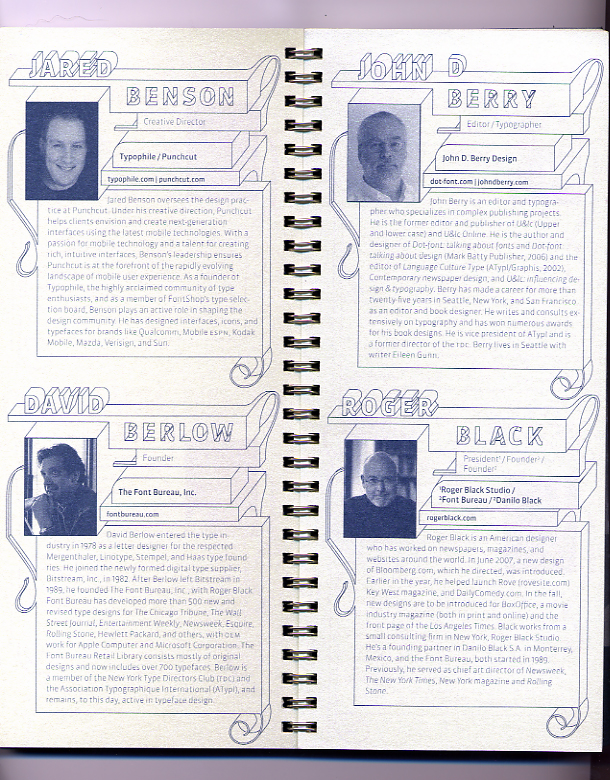 JARED
BENSON
Creative Director
Typophile / Punchcut
typophile.com | punchcut.com
Jared Benson oversees the design prac-
tice at Punchcut. Under his creative direction, Punchcut
helps clients envision and create next-generation
interfaces using the latest mobile technologies. With a
passion for mobile technology and a talent for creating
rich, intuitive interfaces, Benson's leadership ensures
Punchcut is at the forefront of the rapidly evolving
landscape of mobile user experience. As a founder of
Typophile, the highly acclaimed community of type
enthusiasts, and as a member of FontShop's type selec-
tion board, Benson plays an active role in shaping the
design community. He has designed interfaces, icons, and
typefaces for brands like Qualcomm, Mobile ESPN, Kodak
Mobile, Mazda, Verisign, and Sun.
DAVID
BERLOW
Founder
The Font Bureau, Inc.
fontbureau.com
David Berlow entered the type in-
dustry in 1978 as a letter designer for the respected
Mergenthaler, Linotype, Stempel, and Haas type found-
ries. He joined the newly formed digital type supplier,
Bitstream, Inc., in 1982. After Berlow left Bitstream in
1989, he founded The Font Bureau, Inc., with Roger Black.
Font Bureau has developed more than 500 new and
revised type designs for The Chicago Tribune, The Wall
Street Journal, Entertainment Weekly, Newsweek, Esquire,
Rolling Stone, Hewlett Packard, and others, with OEM
work for Apple Computer and Microsoft Corporation. The
Font Bureau Retail Library consists mostly of original
designs and now includes over 700 typefaces. Berlow is
a member of the New York Type Directors Club (TDC) and
the Association Typographique International (ATypI), and
remains, to this day, active in typeface design.
JOHN D
BERRY
Editor / Typographer
John D. Berry Design
dot-font.com | johndberry.com
John Berry is an editor and typogra-
pher who specializes in complex publishing projects.
He is the former editor and publisher of U&lc (Upper
and lower case) and U&lc Online. He is the author and
designer of Dot-font: talking about fonts and Dot-font:
talking about design (Mark Batty Publisher, 2006) and the
editor of Language Culture Type (ATypI/Graphis, 2002),
Contemporary newspaper design, and U&lc: influencing de-
sign & typography. Berry has made a career for more than
twenty-five years in Seattle, New York, and San Francisco
as an editor and book designer. He writes and consults ex-
tensively on typography and has won numerous awards
for his book designs. He is vice president of ATypI and is
a former director of the TDC. Berry lives in Seattle with
writer Eileen Gunn.
ROGER
BLACK
President¹ / Founder² /
Founder³
¹Roger Black Studio /
²Font Bureau / ³Danilo Black
rogerblack.com
Roger Black is an American designer
who has worked on newspapers, magazines, and
websites around the world. In June 2007, a new design
of Bloomberg.com, which he directed, was introduced.
Earlier in the year, he helped launch Rove (rovesite.com)
Key West magazine, and DailyComedy.com. In the fall,
new designs are to be introduced for BoxOffice, a movie
industry magazine (both in print and online) and the
front page of the Los Angeles Times. Black works from a
small consulting firm in New York, Roger Black Studio.
He's a founding partner in Danilo Black S.A. in Monterrey,
Mexico, and the Font Bureau, both started in 1989.
Previously, he served as chief art director of Newsweek,
The New York Times, New York magazine and Rolling
Stone.